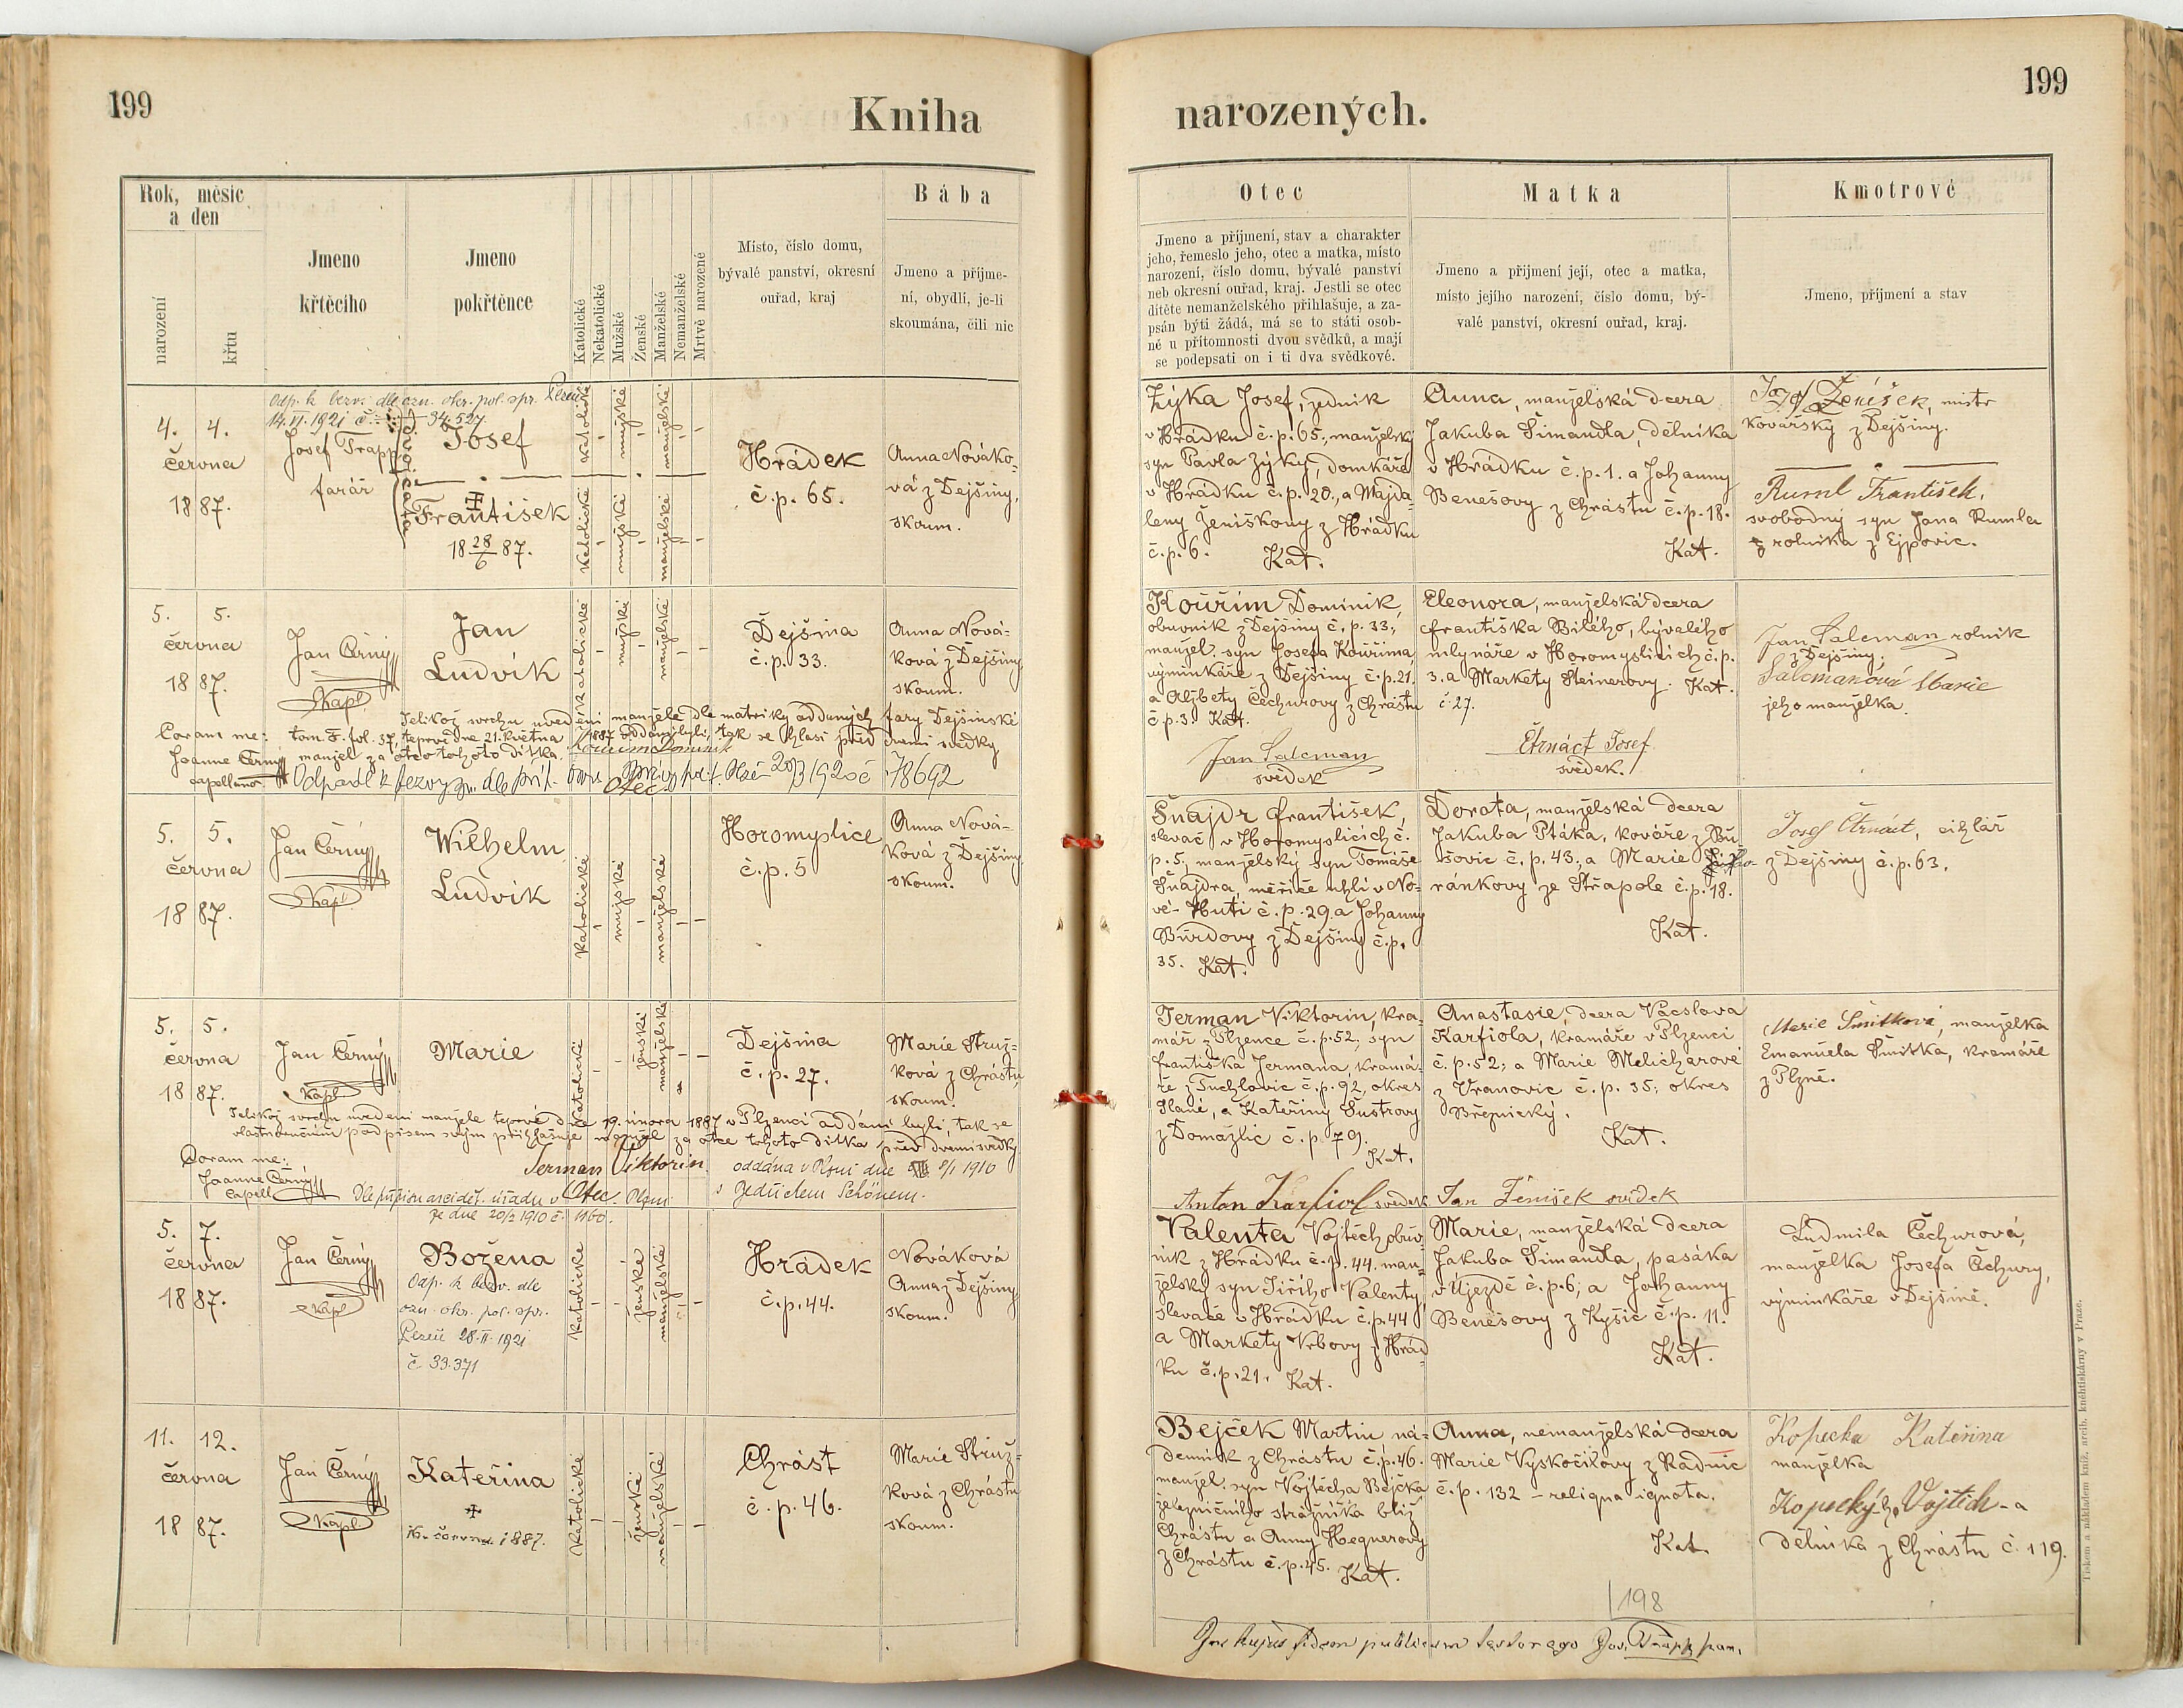 199
Kniha
Rok, měsíc
a den
narození
křtu
Jmeno
křtěcího
Jmeno
pokřtěnce
Katolické
Nekatolické
Mužské
Ženské
Manželské
Nemanželské
Mrtvě narozené
Místo, číslo domu,
bývalé panství, okresní
ouřad, kraj
Bába
Jmeno a příjme-
ní, obydlí, je-li
skoumána, čili nic
odp. k bezv. dle ozn. okr. pol. spr. Plzeň
14.VI.1921 č. 34.527
4. 4.
června
1887.
Josef Trapp
farář
Josef
František
18 28/6 87.
katolické
mužské
manželské
katolické
mužské
manželské
Hrádek
č.p. 65.
Anna Nováko-
vá z Dejšiny,
skoum.
5. 5.
června
1887.
Jan Černý
Kapl.
Jan
Ludvík
katolické
mužské
manželské
Dejšina
č.p. 33.
Anna Nová-
ková z Dejšiny
skoum.
Jelikož svrchu uvedení manželé dle matriky oddaných fary Dejšinské
Coram me: tom. F. fol. 37, teprvé dne 21. května 1887 oddáni byli, tak se hlásí před dvěmi svědky
Joanne Černý manžel za otce tohoto dítka. Kouřim Dominik
capellano Odpadl k bezvyzn. dle příl. 1920 č 78692
Otec.
5. 5.
června
1887.
Jan Černý
Kapl
Wilhelm
Ludvík
katolické
mužské
manželské
Horomyslice
č.p. 5
Anna Nová-
ková z Dejšiny
skoum.
5. 5.
června
1887.
Jan Černý
Kapl
Marie
katolické
ženské
manželské
Dejšina
č.p. 27.
Marie Struž-
ková z Chrástu,
skoum.
Jelikož svrchu uvedení manželé teprvé dne 19. února 1887 v Plzenci oddáni byli, tak se
vlastnoručním podpisem svým přihlašuje manžel za otce tohoto dítka před dvěmi svědky
Coram me:
Joanne Černý
capell
Jerman Viktorin
Otec.
oddána v Plzni dne 8/1 1910
s Bedřichem Schönem.
Dle přípisu arciděk. úřadu v Plzni
ze dne 20/2 1910 č. 1160.
5. 7.
června
1887.
Jan Černý
Kapl
Božena
Odp. k bezv. dle
ozn. okr. pol. spr.
Plzeň 28.II.1921
č 33.371
katolické
ženské
manželské
Hrádek
č.p. 44.
Nováková
Anna z Dejšiny
skoum.
11. 12.
června
1887.
Jan Černý
Kapl
Kateřina
16. června 1887.
katolické
ženské
manželské
Chrást
č.p. 46.
Marie Struž-
ková z Chrástu
skoum.
199
narozených.
Otec
Jmeno a příjmení, stav a charakter
jeho, řemeslo jeho, otec a matka, místo
narození, číslo domu, bývalé panství
neb okresní ouřad, kraj. Jestli se otec
dítěte nemanželského přihlašuje, a za-
psán býti žádá, má se to státi osob-
ně u přítomnosti dvou svědků, a mají
se podepsati on i ti dva svědkové.
Matka
Jmeno a příjmení její, otec a matka,
místo jejího narození, číslo domu, bý-
valé panství, okresní ouřad, kraj.
Kmotrové
Jmeno, příjmení a stav
Zýka Josef, zedník
v Hrádku č.p. 65., manželský
syn Pavla Zýky, domkáře
v Hrádku č.p. 20., a Majda-
leny Ženiškovy z Hrádku
č.p. 6. Kat.
Anna, manželská dcera
Jakuba Šimandla, dělníka
v Hrádku č.p. 1. a Johanny
Benešovy z Chrástu č.p. 18.
Kat.
Josef Ženíšek, mistr
kovářský z Dejšiny.
Ruml František,
svobodný syn Jana Rumla
rolníka z Ejpovic.
Kouřim Dominik,
obuvník z Dejšiny č.p. 33.,
manžel. syn Josefa Kouřima,
výminkáře z Dejšiny č.p. 21.
a Alžbety Čechurovy z Chrástu
č.p. 3. Kat.
Eleonora, manželská dcera
Františka Bílého, bývalého
mlynáře v Horomyslicích č.p.
3. a Markety Steinerovy. Kat.
č 27.
Jan Salcman rolník
z Dejšiny,
Salcmanová Marie
jeho manželka.
Jan Salcman
svědek
Čtrnáct Josef
svědek.
Šnajdr František,
slevač v Horomyslicích č.
p. 5., manželský syn Tomáše
Šnajdra, měřiče uhlí v No-
vé Huti č.p. 29. a Johanny
Burdovy z Dejšiny č.p.
35. Kat.
Dorata, manželská dcera
Jakuba Ptáka, kováře z Bu-
šovic č.p. 43., a Marie
ránkovy ze Střapole č.p. 18.
Kat.
Josef Čtrnáct, cihlář
z Dejšiny č.p. 63.
Jerman Viktorin, kra-
mář z Plzence č.p. 52, syn
Františka Jermana, kramá-
ře z Tuchlovic č.p. 92, okres
Slané, a Kateřiny Šustrovy
z Domažlic č.p. 79.
Kat.
Anastasie, dcera Václava
Karfiola, kramáře v Plzenci
č.p. 52; a Marie Melicharové
z Vranovic č.p. 35; okres
Březnický.
Kat.
Marie Šmitková, manželka
Emanuela Šmitka, kramáře
z Plzně.
Anton Karfiol svědek
Jan Ženíšek svědek
Valenta Vojtěch, obuv-
ník z Hrádku č.p. 44. man-
želský syn Jiřího Valenty,
slevače v Hrádku č.p. 44
a Markety Vrbovy z Hrád-
ku č.p. 21. Kat.
Marie, manželská dcera
Jakuba Šimandla, pasáka
v Újezdě č.p. 6; a Johanny
Benešovy z Kyšic č.p. 11.
Kat.
Ludmila Čechurová,
manželka Josefa Čechury,
výminkáře v Dejšině.
Bejček Martin ná-
denník z Chrástu č.p. 46.
manžel. syn Vojtěcha Bejčka
železničního strážníka blíž
Chrástu a Anny Hegnerovy
z Chrástu č.p. 45. Kat.
Anna, nemanželská dcera
Marie Vyskočilovy z Radnic
č.p. 132 - religna ignota.
Kat.
Kopecka Kateřina
manželka
Kopecký-ho Vojtěch-a
dělníka z Chrástu č. 119.
198
In hujus fidem publicam testor ego Jos. Trapp par.
Tiskem a nákladem kníž. arcib. knihtiskárny v Praze.